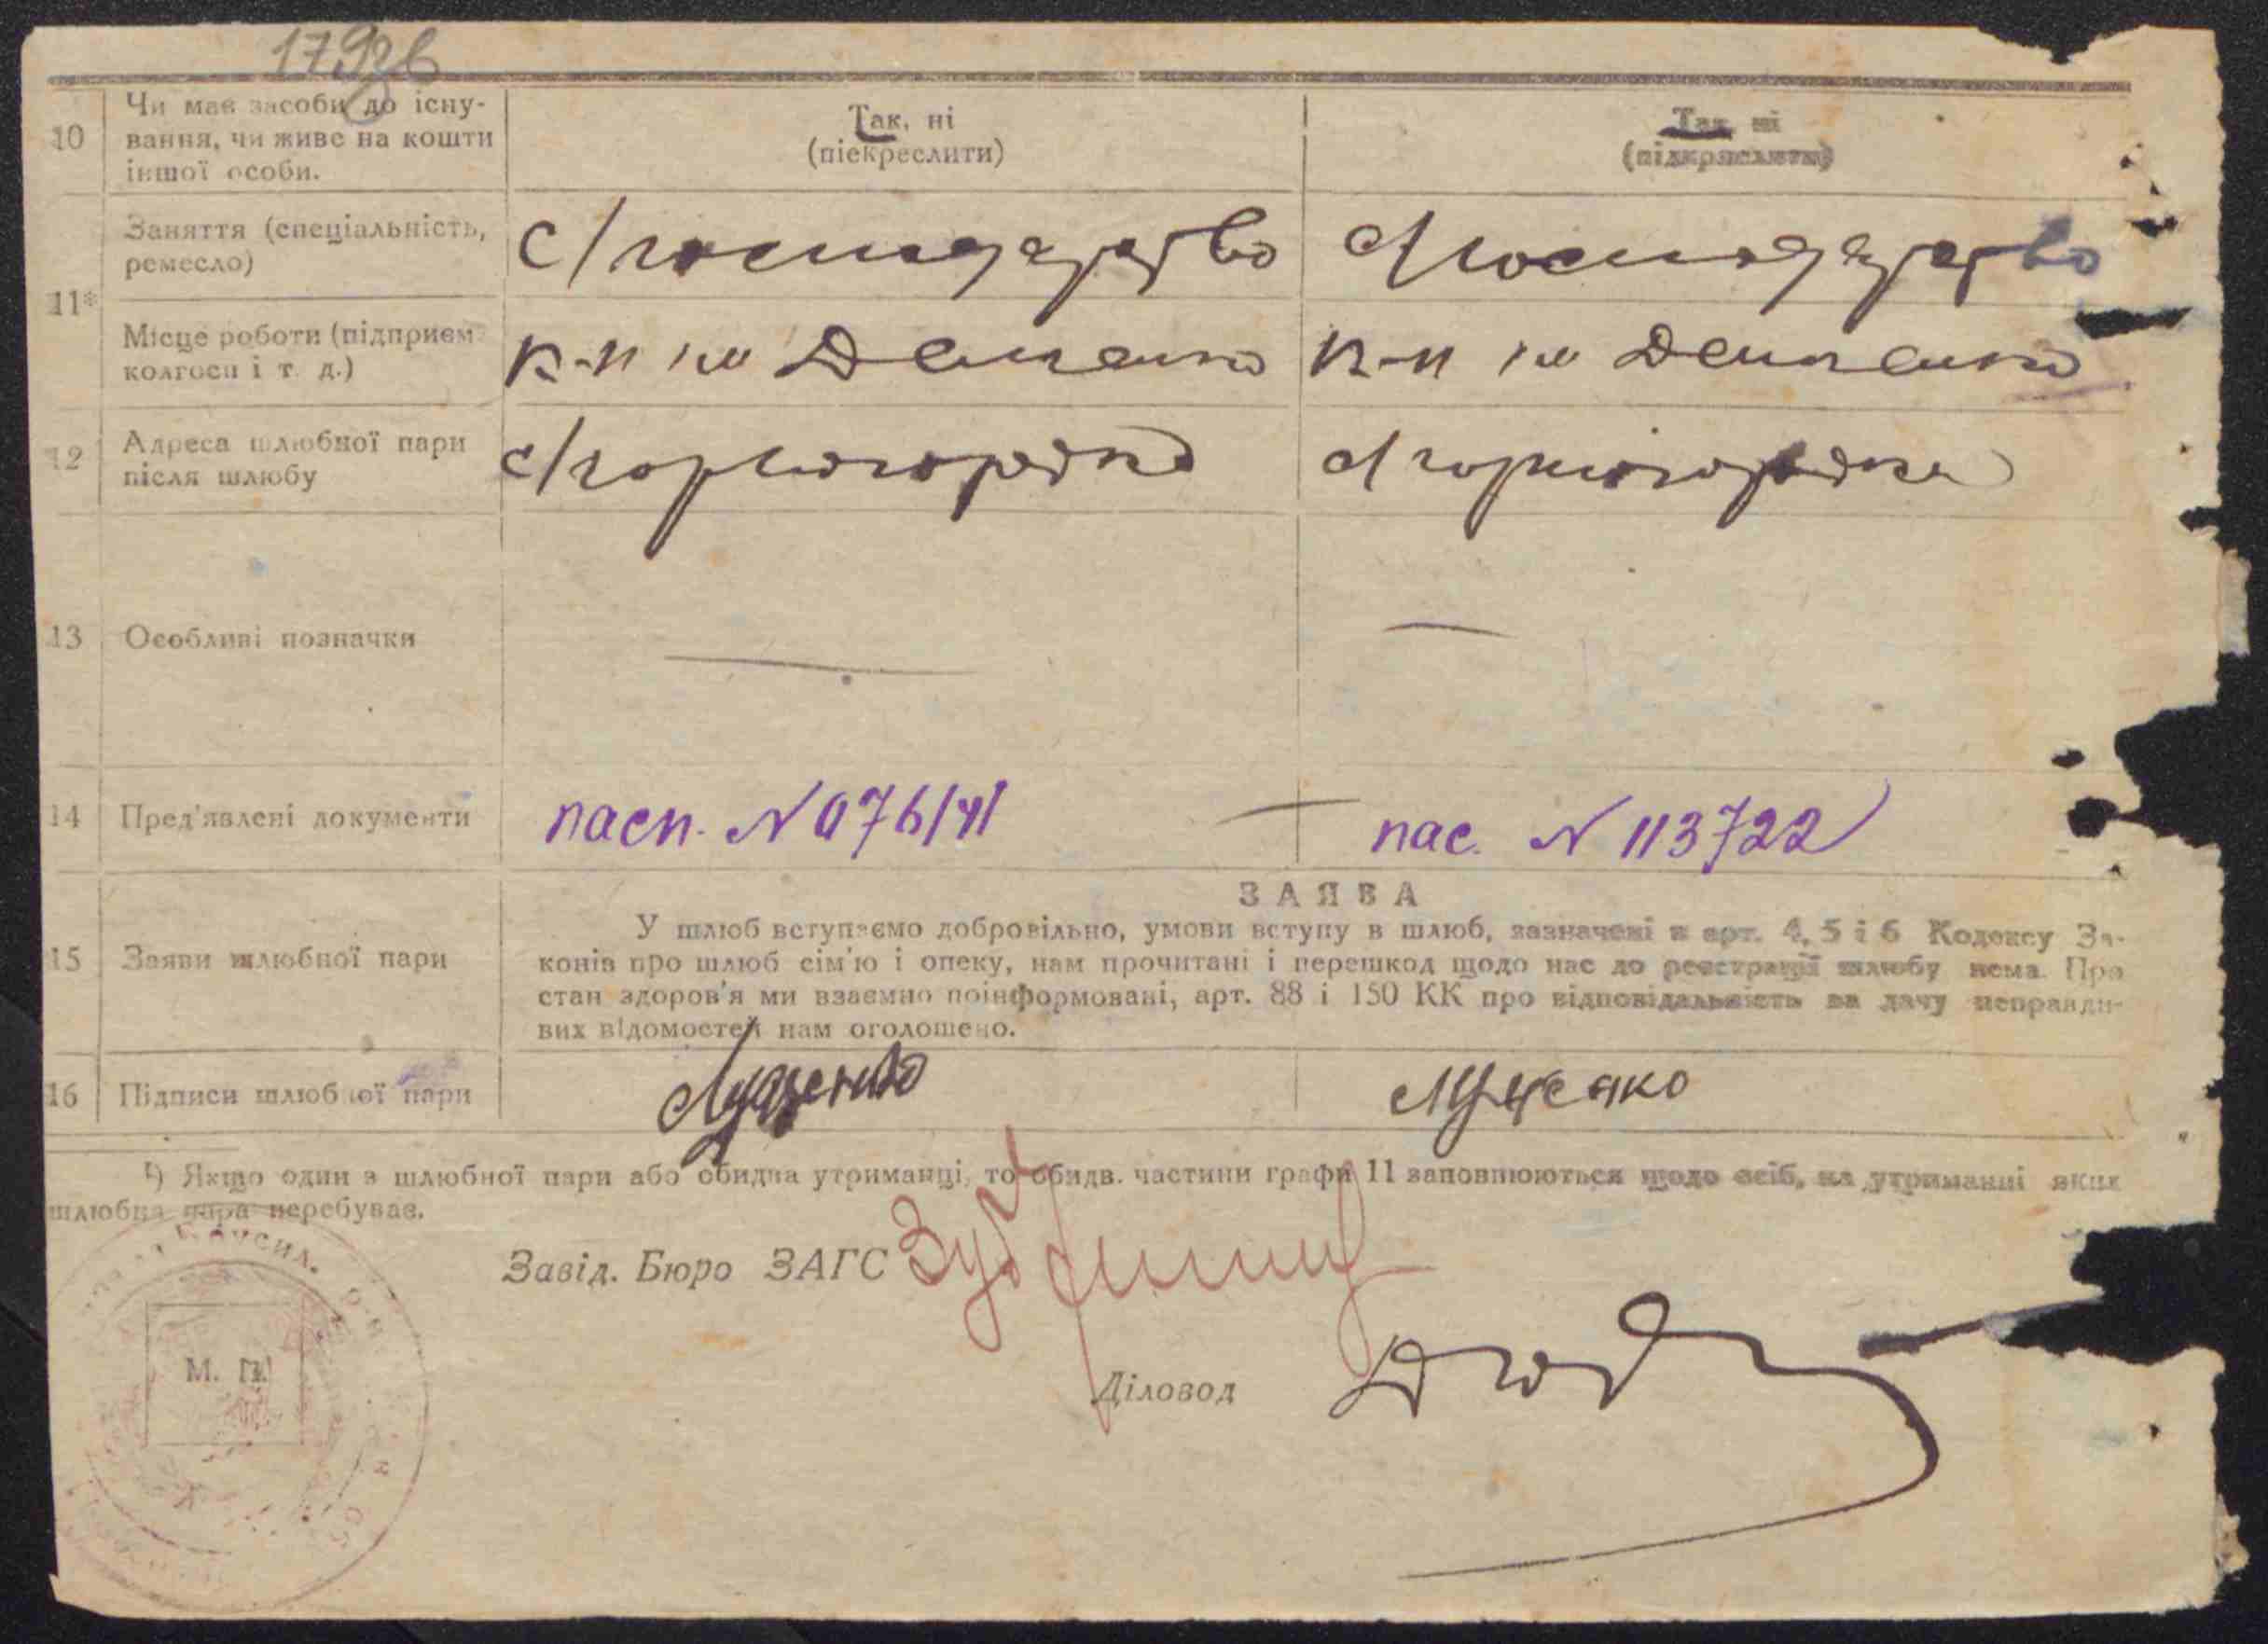 179зв
10 Чи має засоби до існу-
вання, чи живе на кошти
іншої особи.
Так, ні
(піекреслити)
Так, ні
(підкреслити)
11*
Заняття (спеціальність,
ремесло)
с/господарство
с/господарство
Місце роботи (підприєм
колгосп і т. д.)
к-п ім Демченко
к-п ім Демченко
12 Адреса шлюбної пари
після шлюбу
13 Особливі позначки
14 Пред'явлені документи
пасп. N 076/41
пас. N 113722
ЗАЯВА
15 Заяви шлюбної пари
У шлюб вступаємо добровільно, умови вступу в шлюб, зазначені в арт. 4, 5 і 6 Кодексу За-
конів про шлюб сім'ю і опеку, нам прочитані і перешкод щодо нас до реєстрації шлюбу нема. Про
стан здоров'я ми взаємно поінформовані, арт. 88 і 150 КК про відповідальність за дачу неправди-
вих відомостей нам оголошено.
16 Підписи шлюбної пари
Луценко
¹) Якщо один з шлюбної пари або обидва утриманці, то обидв. частини графи 11 заповнюються щодо осіб, на утриманні яких
шлюбна пара перебуває.
Завід. Бюро ЗАГС
М. П.
Діловод